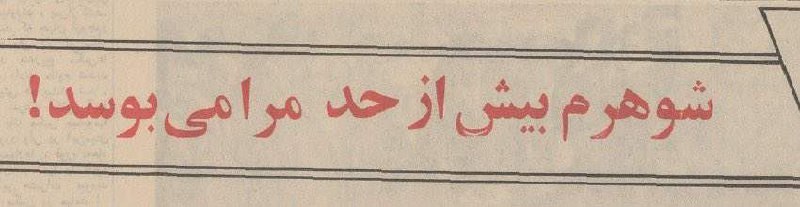 شوهرم بیش از حد مرا می‌بوسد!